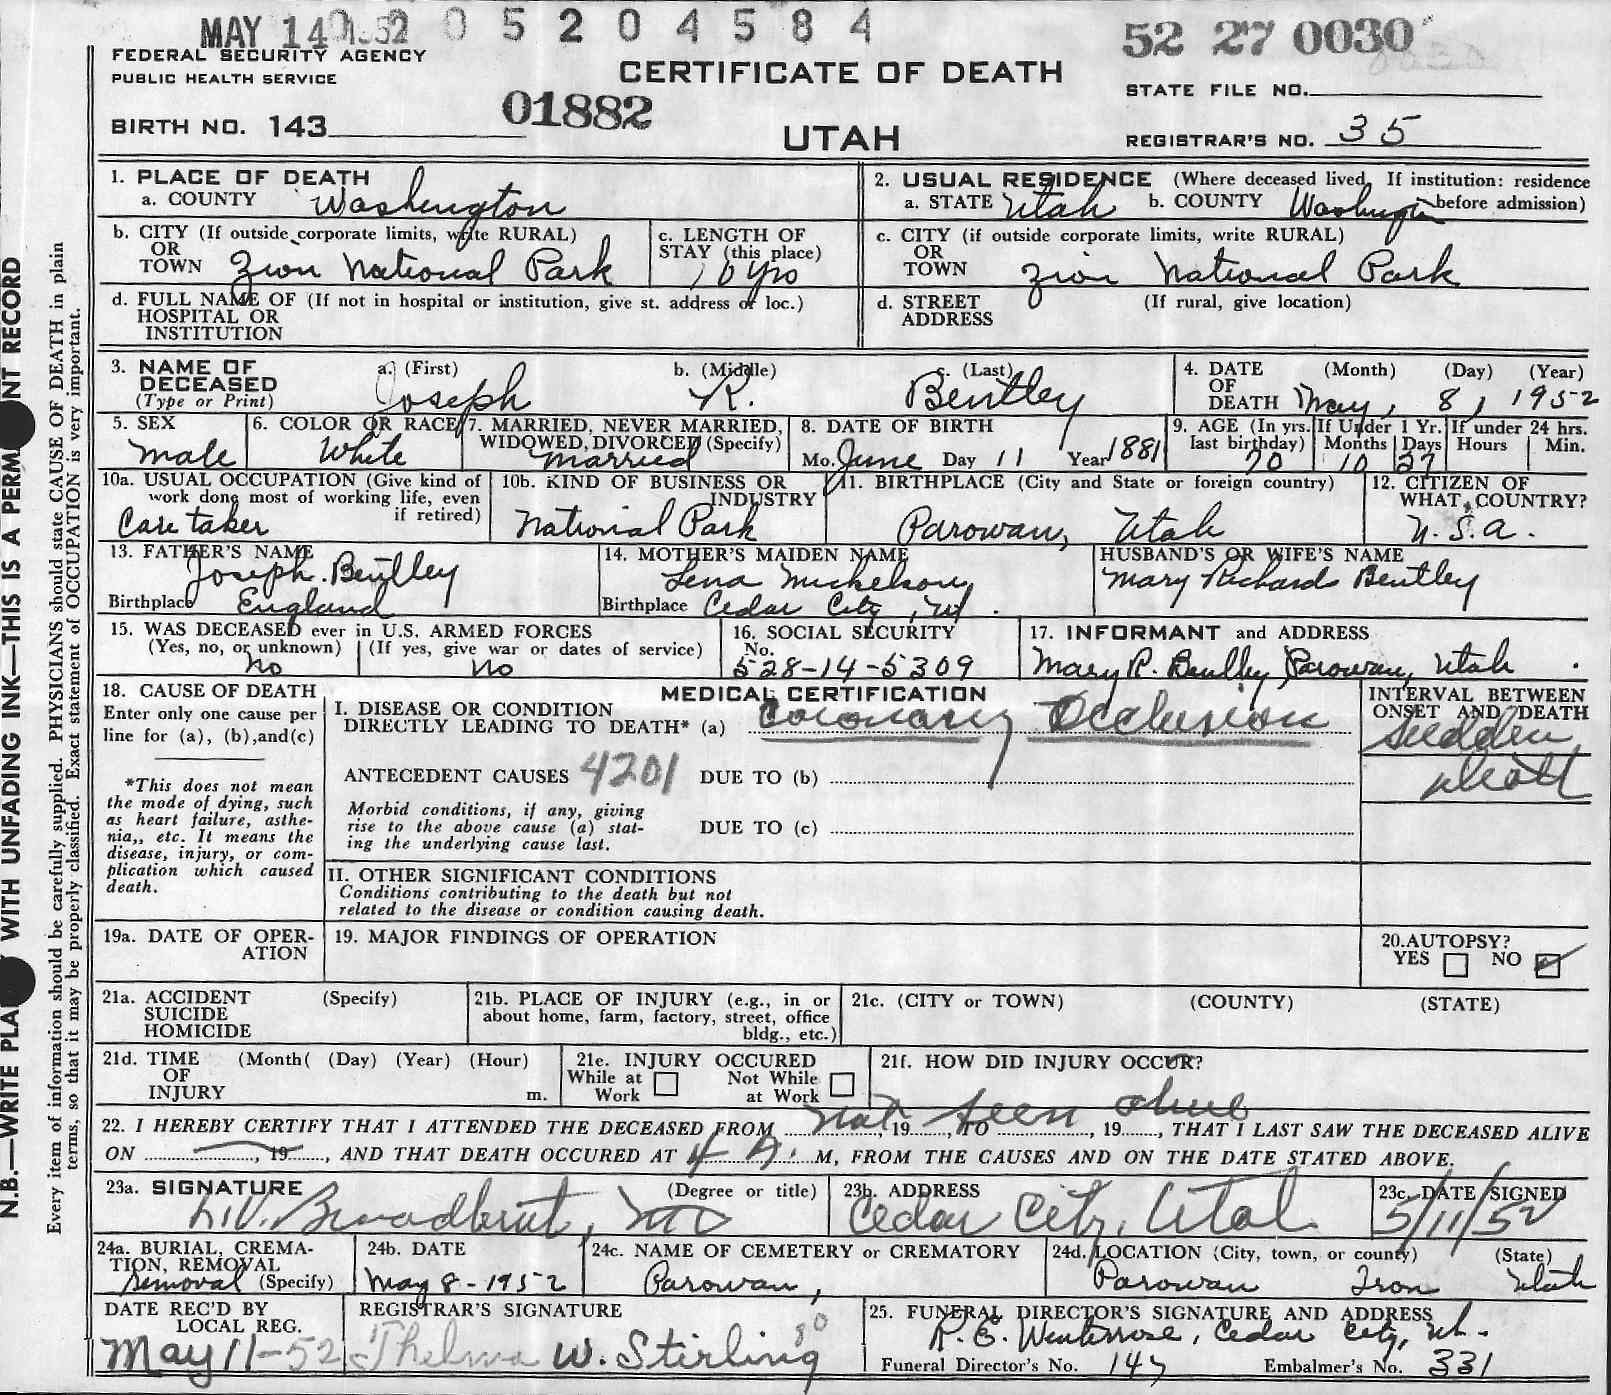 MAY 14 1952 0 5 2 0 4 5 8 4
52 27 0030
FEDERAL SECURITY AGENCY
PUBLIC HEALTH SERVICE
CERTIFICATE OF DEATH
STATE FILE NO.
BIRTH NO. 143
01882
UTAH
REGISTRAR'S NO. 35
N.B.—WRITE PLA WITH UNFADING INK—THIS IS A PERM NT RECORD
Every item of information should be carefully supplied. PHYSICIANS should state CAUSE OF DEATH in plain
terms, so that it may be properly classified. Exact statement of OCCUPATION is very important.
1. PLACE OF DEATH
a. COUNTY Washington
2. USUAL RESIDENCE (Where deceased lived. If institution: residence
a. STATE Utah b. COUNTY Washington before admission)
b. CITY (If outside corporate limits, write RURAL)
OR
TOWN Zion National Park
c. LENGTH OF
STAY (this place)
10 yrs
c. CITY (if outside corporate limits, write RURAL)
OR
TOWN Zion National Park
d. FULL NAME OF (If not in hospital or institution, give st. address or loc.)
HOSPITAL OR
INSTITUTION
d. STREET (If rural, give location)
ADDRESS
3. NAME OF
DECEASED
(Type or Print)
a. (First) b. (Middle) c. (Last)
Joseph R. Bentley
4. DATE (Month) (Day) (Year)
OF
DEATH May, 8, 1952
5. SEX
Male
6. COLOR OR RACE
White
7. MARRIED, NEVER MARRIED,
WIDOWED, DIVORCED (Specify)
Married
8. DATE OF BIRTH
Mo. June Day 11 Year 1881
9. AGE (In yrs. last birthday)
70
If Under 1 Yr.
Months Days
10 27
If under 24 hrs.
Hours Min.
10a. USUAL OCCUPATION (Give kind of
work done most of working life, even
if retired)
Care taker
10b. KIND OF BUSINESS OR
INDUSTRY
National Park
11. BIRTHPLACE (City and State or foreign country)
Parowan, Utah
12. CITIZEN OF
WHAT COUNTRY?
U.S.A.
13. FATHER'S NAME
Joseph Bentley
Birthplace England
14. MOTHER'S MAIDEN NAME
Lena Mickelson
Birthplace Cedar City, Ut.
HUSBAND'S OR WIFE'S NAME
Mary Richards Bentley
15. WAS DECEASED ever in U.S. ARMED FORCES
(Yes, no, or unknown) (If yes, give war or dates of service)
No No
16. SOCIAL SECURITY
No.
528-14-5309
17. INFORMANT and ADDRESS
Mary R. Bentley, Parowan, Utah.
18. CAUSE OF DEATH
Enter only one cause per
line for (a), (b),and(c)
*This does not mean
the mode of dying, such
as heart failure, asthe-
nia,, etc. It means the
disease, injury, or com-
plication which caused
death.
MEDICAL CERTIFICATION
I. DISEASE OR CONDITION
DIRECTLY LEADING TO DEATH* (a) Coronary Occlusion
ANTECEDENT CAUSES 4201 DUE TO (b)
Morbid conditions, if any, giving
rise to the above cause (a) stat-
ing the underlying cause last.
DUE TO (c)
INTERVAL BETWEEN
ONSET AND DEATH
Sudden
death
II. OTHER SIGNIFICANT CONDITIONS
Conditions contributing to the death but not
related to the disease or condition causing death.
19a. DATE OF OPER-
ATION
19. MAJOR FINDINGS OF OPERATION
20.AUTOPSY?
YES NO
21a. ACCIDENT (Specify)
SUICIDE
HOMICIDE
21b. PLACE OF INJURY (e.g., in or
about home, farm, factory, street, office
bldg., etc.)
21c. (CITY or TOWN) (COUNTY) (STATE)
21d. TIME (Month( (Day) (Year) (Hour)
OF
INJURY m.
21e. INJURY OCCURED
While at Work Not While at Work
21f. HOW DID INJURY OCCUR?
Not seen alive
22. I HEREBY CERTIFY THAT I ATTENDED THE DECEASED FROM , 19 , TO , 19 , THAT I LAST SAW THE DECEASED ALIVE
ON , 19 , AND THAT DEATH OCCURED AT 4 A. M, FROM THE CAUSES AND ON THE DATE STATED ABOVE.
23a. SIGNATURE (Degree or title)
Broadbent, MD
23b. ADDRESS
Cedar City, Utah
23c. DATE SIGNED
5/11/52
24a. BURIAL, CREMA-
TION, REMOVAL
Removal (Specify)
24b. DATE
May 8-1952
24c. NAME OF CEMETERY or CREMATORY
Parowan,
24d. LOCATION (City, town, or county) (State)
Parowan Iron Utah
DATE REC'D BY
LOCAL REG.
May 11-52
REGISTRAR'S SIGNATURE
Thelma W. Stirling
80
25. FUNERAL DIRECTOR'S SIGNATURE AND ADDRESS
Cedar City, Ut.
Funeral Director's No. 147 Embalmer's No. 331